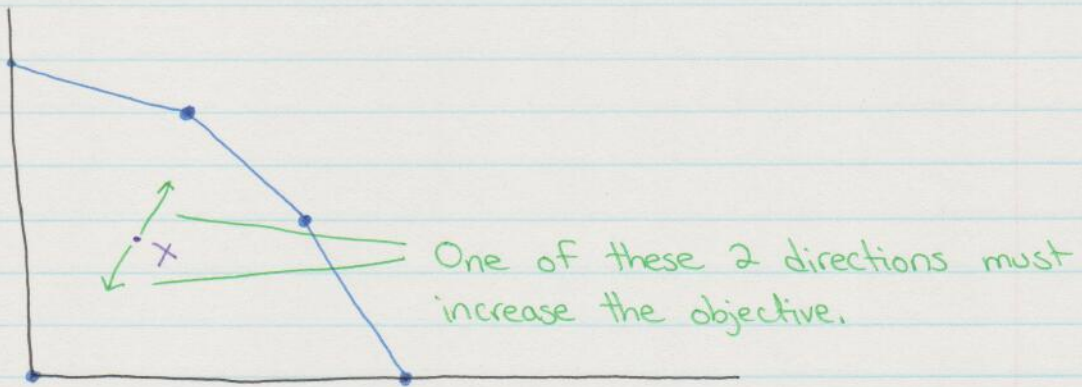 x
One of these 2 directions must
increase the objective.